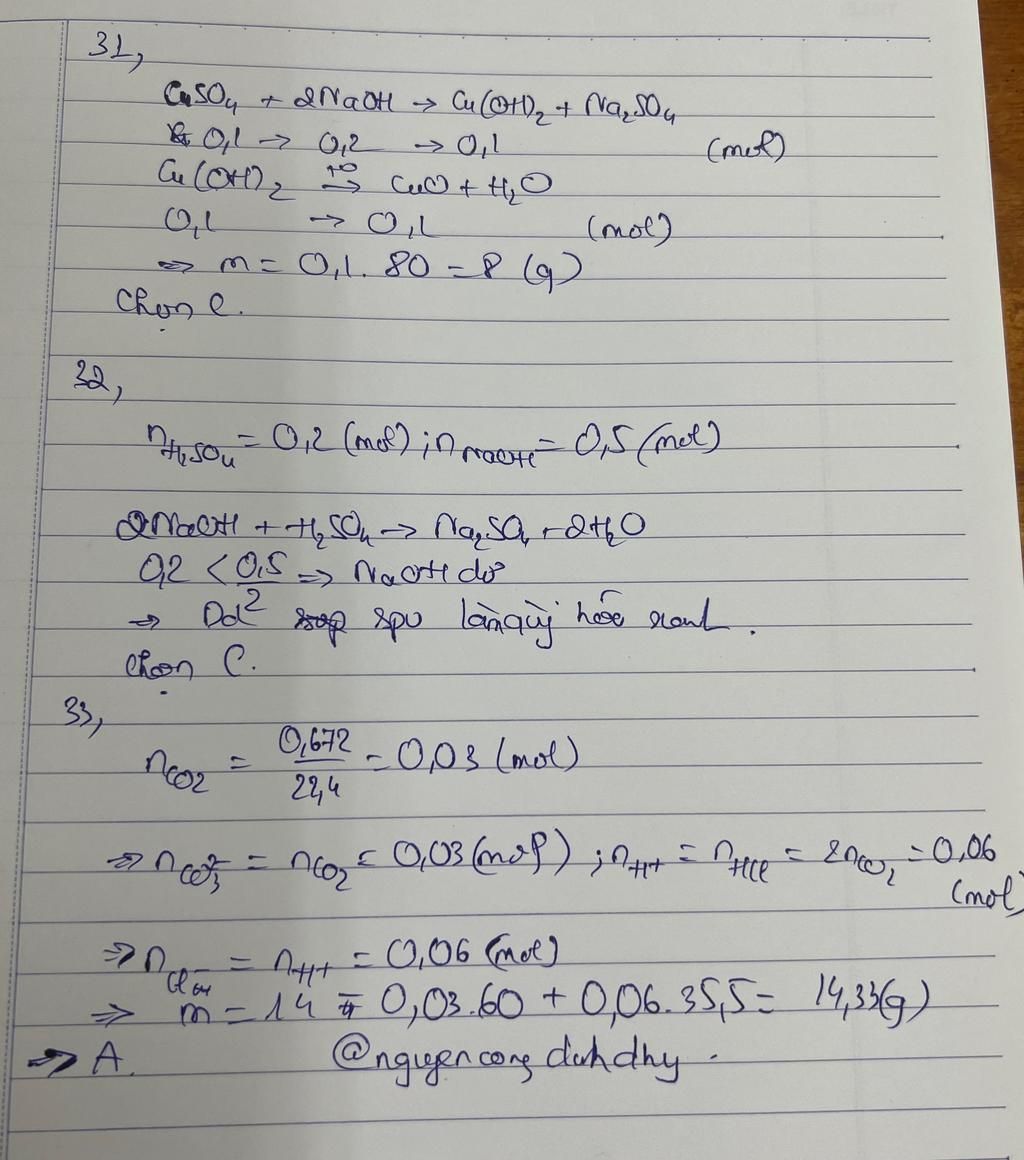 31,
CuSO4 + 2NaOH → Cu(OH)2 + Na2SO4
0,1 → 0,2 → 0,1 (mol)
Cu(OH)2 t° → CuO + H2O
0,1 → 0,1 (mol)
=> m = 0,1. 80 = 8 (g)
Chọn C.
32,
nH2SO4 = 0,2 (mol) ; nNaOH = 0,5 (mol)
2NaOH + H2SO4 → Na2SO4 + 2H2O
0,2 < 0,5/2 => NaOH dư
=> Dd spư làm quỳ hóa xanh.
Chọn C.
33,
nCO2 = 0,672/22,4 = 0,03 (mol)
=> nCO3^2- = nCO2 = 0,03 (mol) ; nH+ = nHCl = 2nCO2 = 0,06
(mol)
=> nCl- = nH+ = 0,06 (mol)
=> m = 14 - 0,03.60 + 0,06.35,5 = 14,33(g)
=> A. @nguyencongduhdhy.